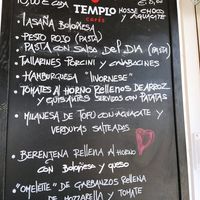 TEMPIO
CAFÉS
MOSSE CHOCO
Y AGUACATE
• LASAÑA BOLOÑESA
• PESTO ROJO (PASTA)
• PASTA CON SALSA DEL DIA (PASTA)
• TALLARINES PORCINI Y CALABACINES
• HAMBURGUESA "INORNESE"
• TOMATES AL HORNO RELLENOS DE ARROZ
Y GUISANTES SERVIDOS CON PATATAS
• MILANESA DE TOFU CON AGUACATE Y
VERDURAS SALTEADAS
• BERENJENA RELLENA AL HORNO
CON BOLOÑESA Y QUESO
• "OMELETTE" DE GARBANZOS RELLENA
DE MOZZARELLA Y TOMATE